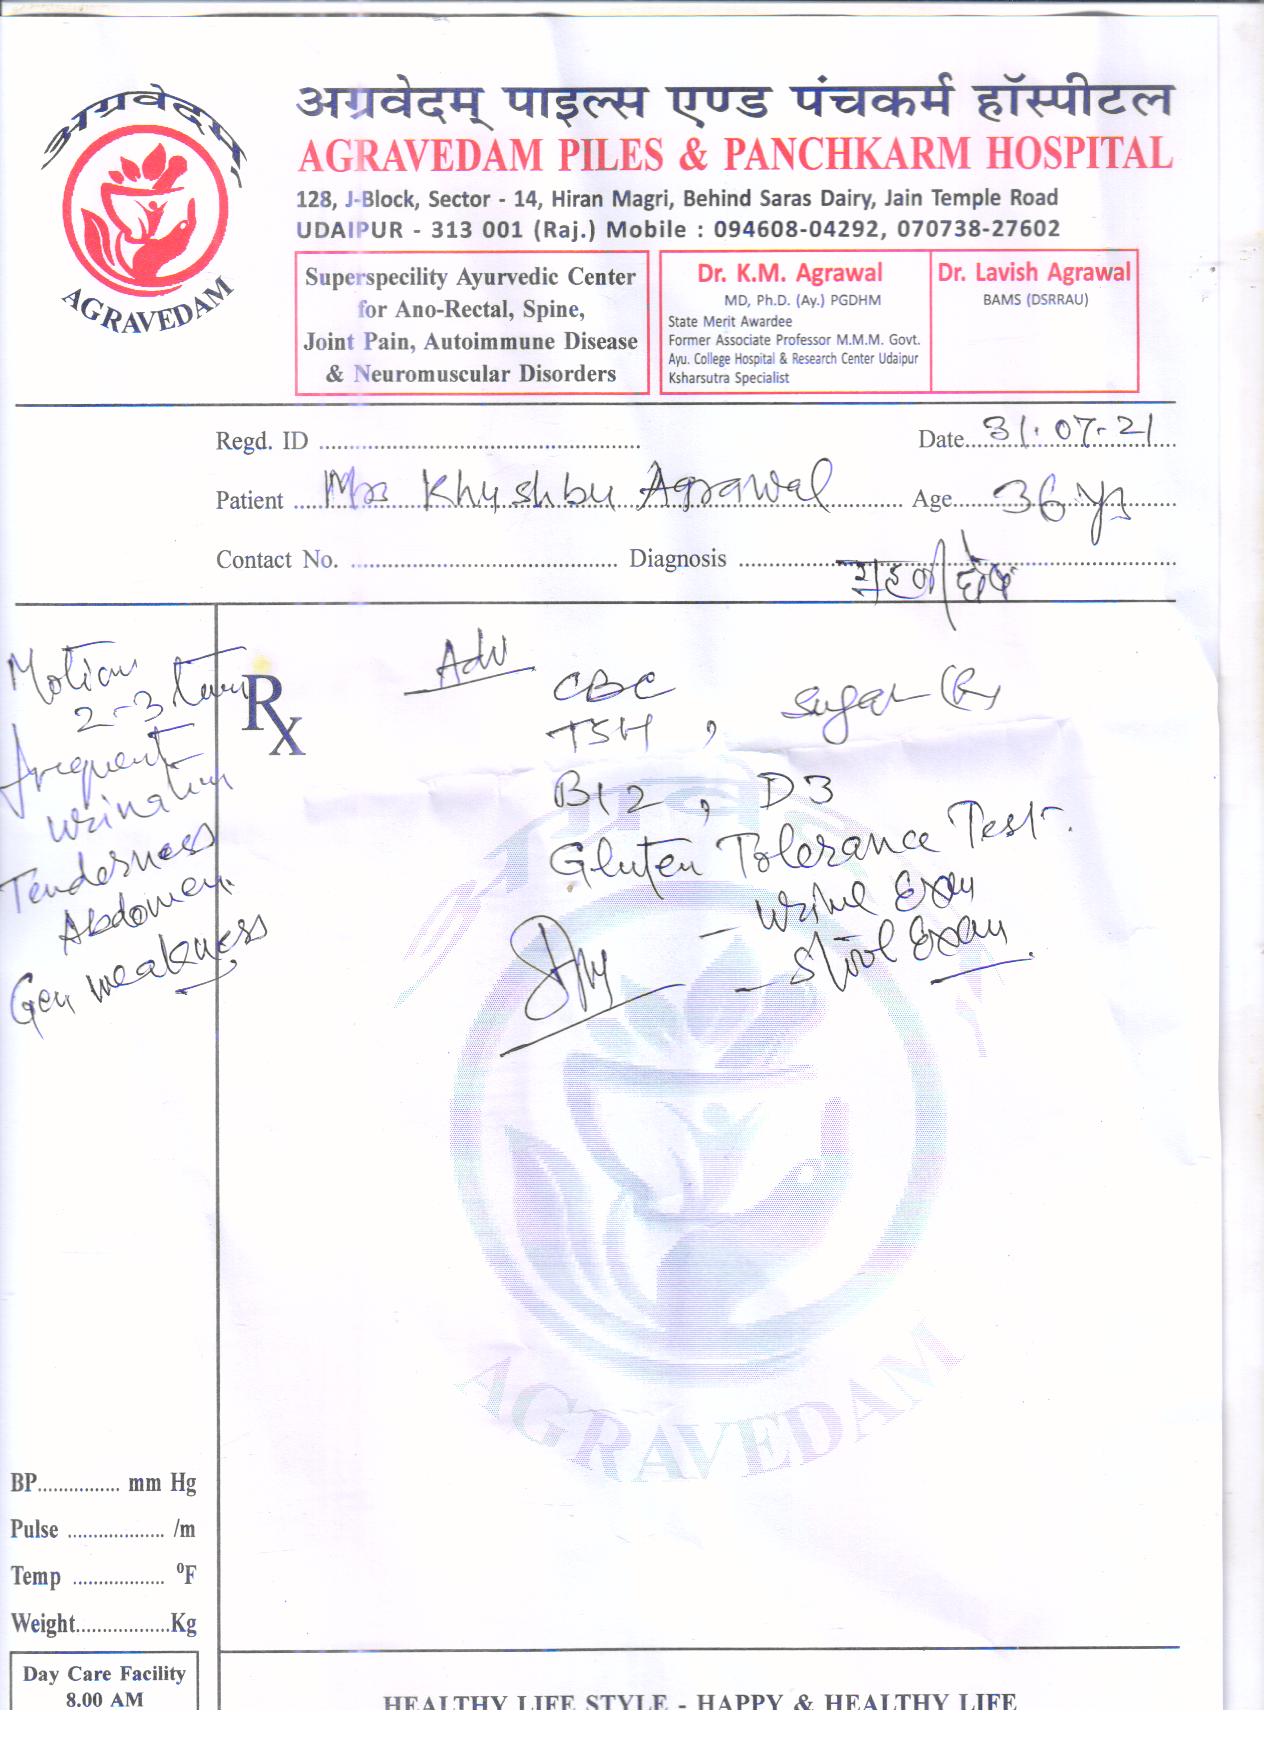 अग्रवेदम्
AGRAVEDAM
अग्रवेदम् पाइल्स एण्ड पंचकर्म हॉस्पीटल
AGRAVEDAM PILES & PANCHKARM HOSPITAL
128, J-Block, Sector - 14, Hiran Magri, Behind Saras Dairy, Jain Temple Road
UDAIPUR - 313 001 (Raj.) Mobile : 094608-04292, 070738-27602
Superspecility Ayurvedic Center
for Ano-Rectal, Spine,
Joint Pain, Autoimmune Disease
& Neuromuscular Disorders
Dr. K.M. Agrawal
MD, Ph.D. (Ay.) PGDHM
State Merit Awardee
Former Associate Professor M.M.M. Govt.
Ayu. College Hospital & Research Center Udaipur
Ksharsutra Specialist
Dr. Lavish Agrawal
BAMS (DSRRAU)
Regd. ID
Date 31.07-21
Patient Mrs Khushbu Agrawal Age 36 yr
Contact No. Diagnosis
Motion
2-3
frequent
urination
Tenderness
Abdomen.
Gen weakness
Rx
Adv
CBC
TSH , Sugar (R)
B12 , D3
Gluten Tolerance Test.
- Urine Exam
- Stool Exam
BP mm Hg
Pulse /m
Temp ⁰F
Weight Kg
Day Care Facility
8.00 AM
AGRAVEDAM
HEALTHY LIFE STYLE - HAPPY & HEALTHY LIFE